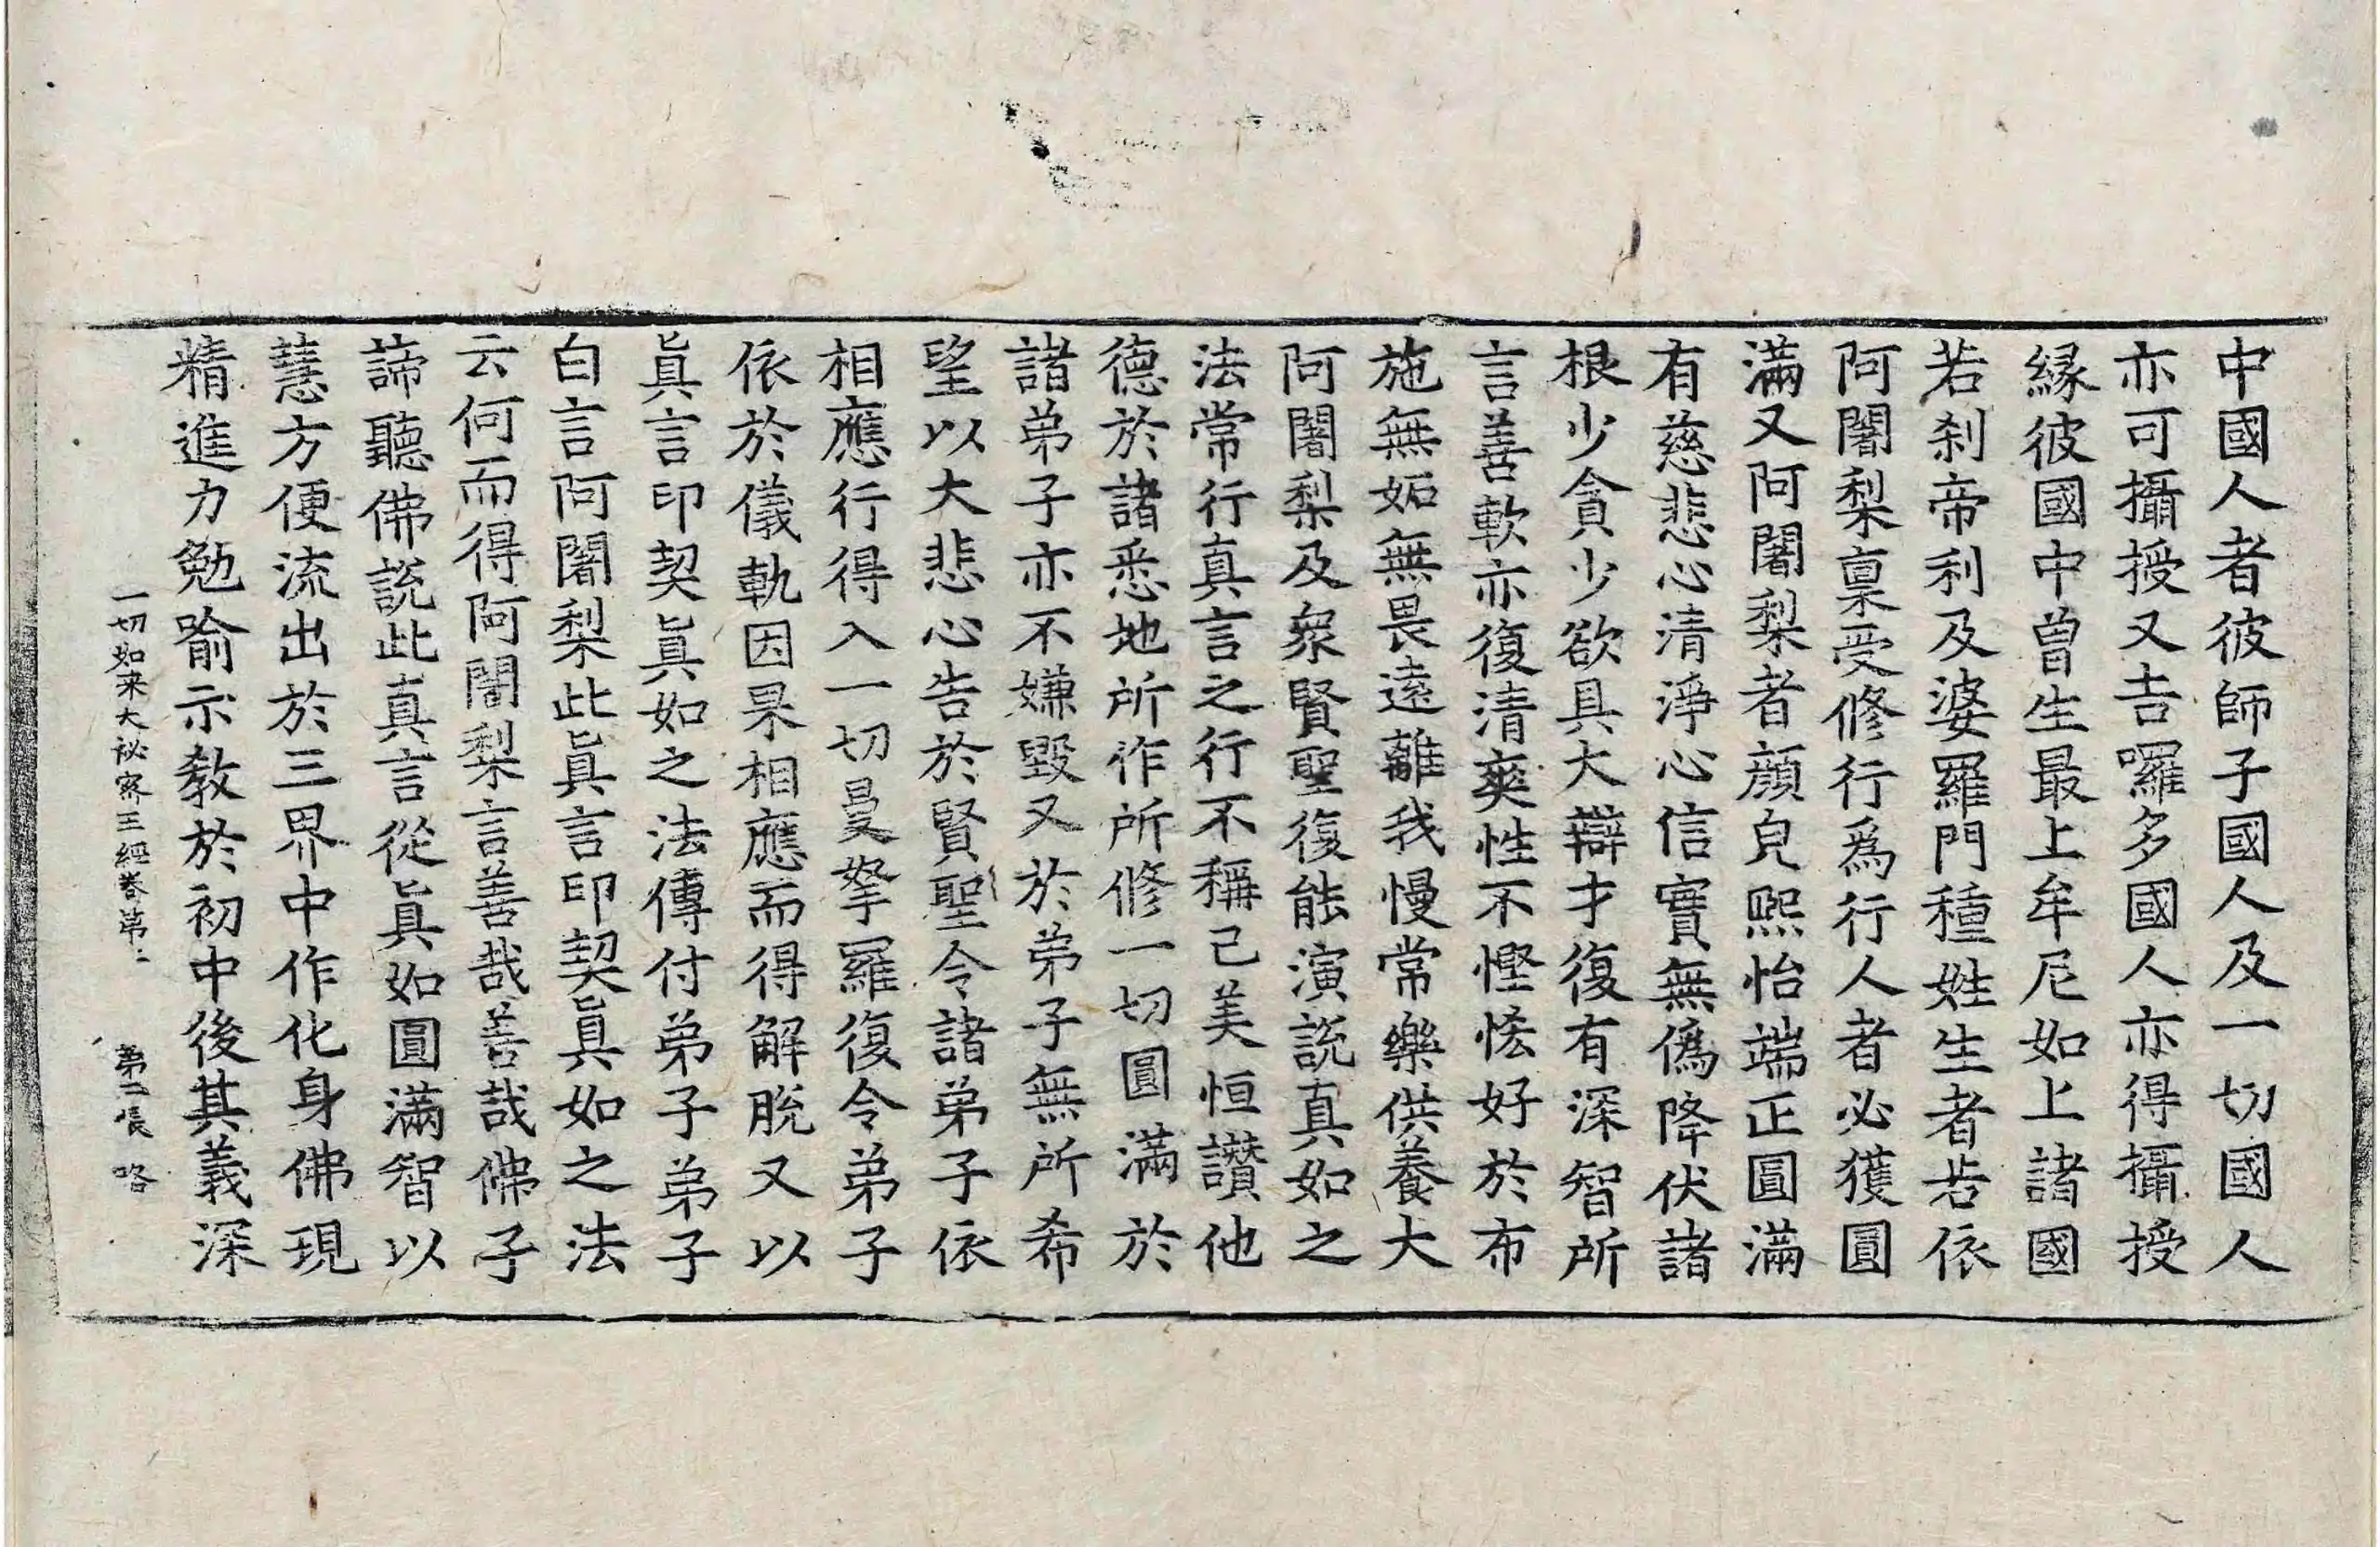 中國人者彼師子國人及一切國人
亦可攝授又吉囉多國人亦得攝授
緣彼國中曾生最上牟尼如上諸國
若刹帝利及婆羅門種姓生者若依
阿闍梨稟受修行爲行人者必獲圓
滿又阿闍梨者顔皃熙怡端正圓滿
有慈悲心清淨心信實無僞降伏諸
根少貪少欲具大辯才復有深智所
言善軟亦復清爽性不慳悋好於布
施無妬無畏遠離我慢常樂供養大
阿闍梨及衆賢聖復能演說真如之
法常行真言之行不稱己美恒讚他
德於諸悉地所作所修一切圓滿於
諸弟子亦不嫌毀又於弟子無所希
望以大悲心告於賢聖令諸弟子依
相應行得入一切曼拏羅復令弟子
依於儀軌因果相應而得解脫又以
眞言印契眞如之法傳付弟子弟子
白言阿闍梨此眞言印契眞如之法
云何而得阿闍梨言善哉善哉佛子
諦聽佛說此真言從眞如圓滿智以
慧方便流出於三界中作化身佛現
精進力勉喻示教於初中後其義深
一切如来大祕密王經卷第二 第二張 咯